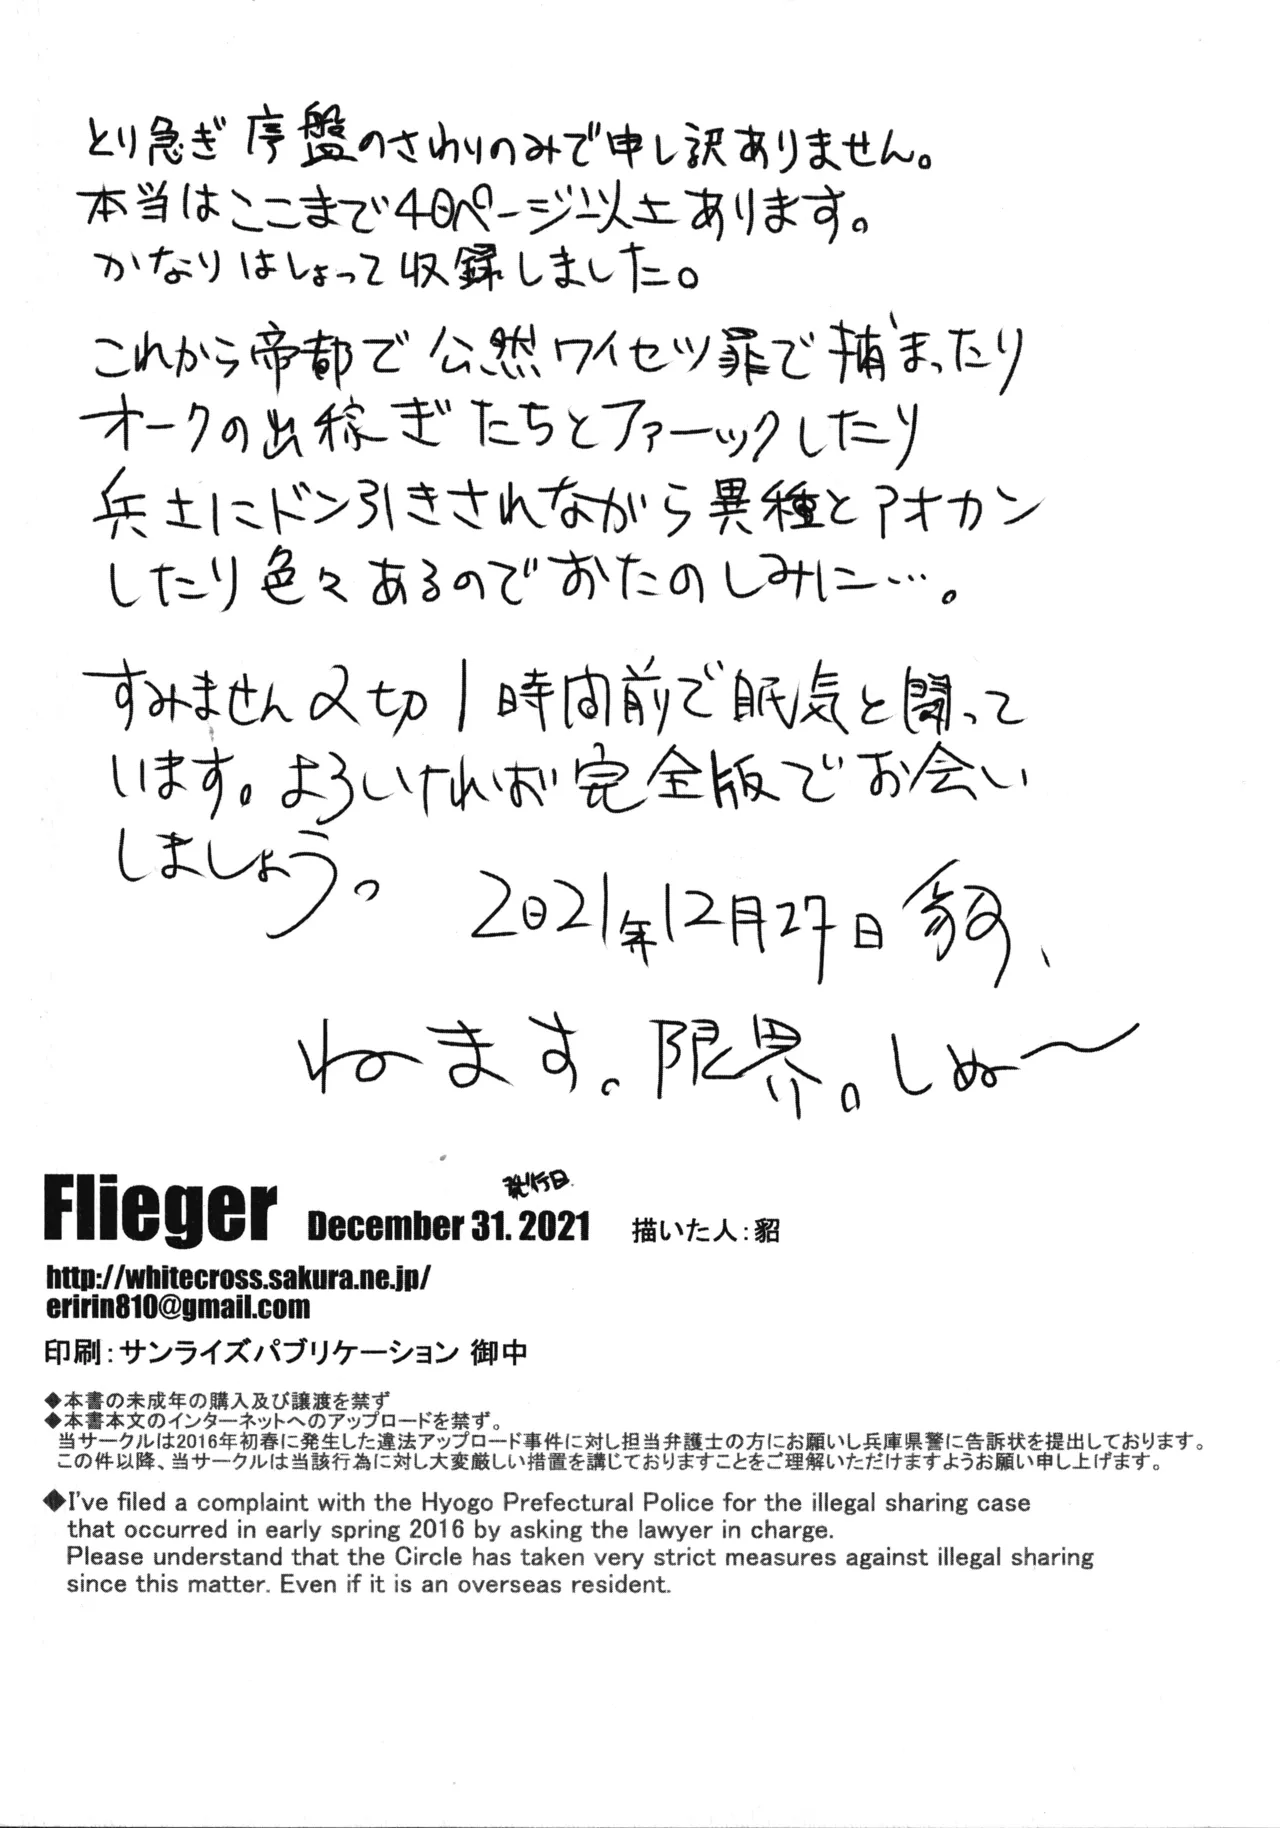 とり急ぎ序盤のさわりのみで申し訳ありません。
本当はここまで40ページ以上あります。
かなりはしょって収録しました。
これから帝都で公然ワイセツ罪で捕まったり
オークの出稼ぎたちとファーックしたり
兵士にドン引きされながら異種とアオカン
したり色々あるのでおたのしみに…。
すみません〆切1時間前で眠気と闘って
います。よろしければ完全版でお会い
しましょう。
2021年12月27日 貂、
ねます。限界。しぬ〜
Flieger 発行日 December 31. 2021 描いた人：貂
http://whitecross.sakura.ne.jp/
eririn810@gmail.com
印刷：サンライズパブリケーション 御中
◆本書の未成年の購入及び譲渡を禁ず
◆本書本文のインターネットへのアップロードを禁ず。
当サークルは2016年初春に発生した違法アップロード事件に対し担当弁護士の方にお願いし兵庫県警に告訴状を提出しております。
この件以降、当サークルは当該行為に対し大変厳しい措置を講じておりますことをご理解いただけますようお願い申し上げます。
◆I've filed a complaint with the Hyogo Prefectural Police for the illegal sharing case
that occurred in early spring 2016 by asking the lawyer in charge.
Please understand that the Circle has taken very strict measures against illegal sharing
since this matter. Even if it is an overseas resident.